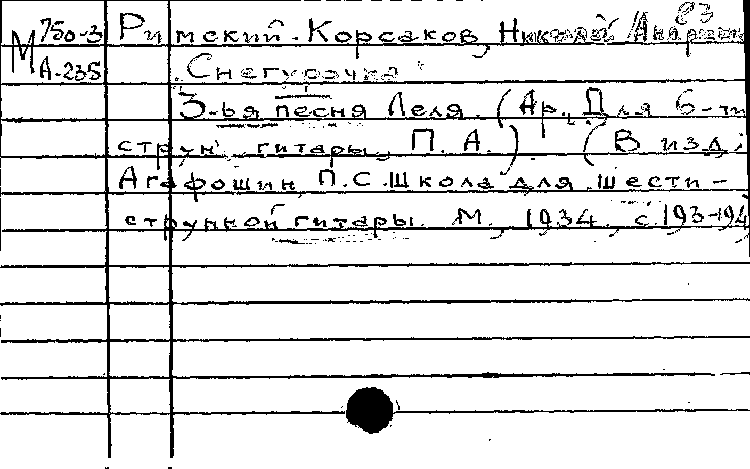 83
М 750-3 Римский-Корсаков, Николай Андреев
А-235 "Снегурочка"
3-ья песня Леля. (Ар. Для 6-ти
струн. гитары П. А.) (В изд.:
Агафошин, П.С. Школа для шести-
струнной гитары. М., 1934, с. 193-194